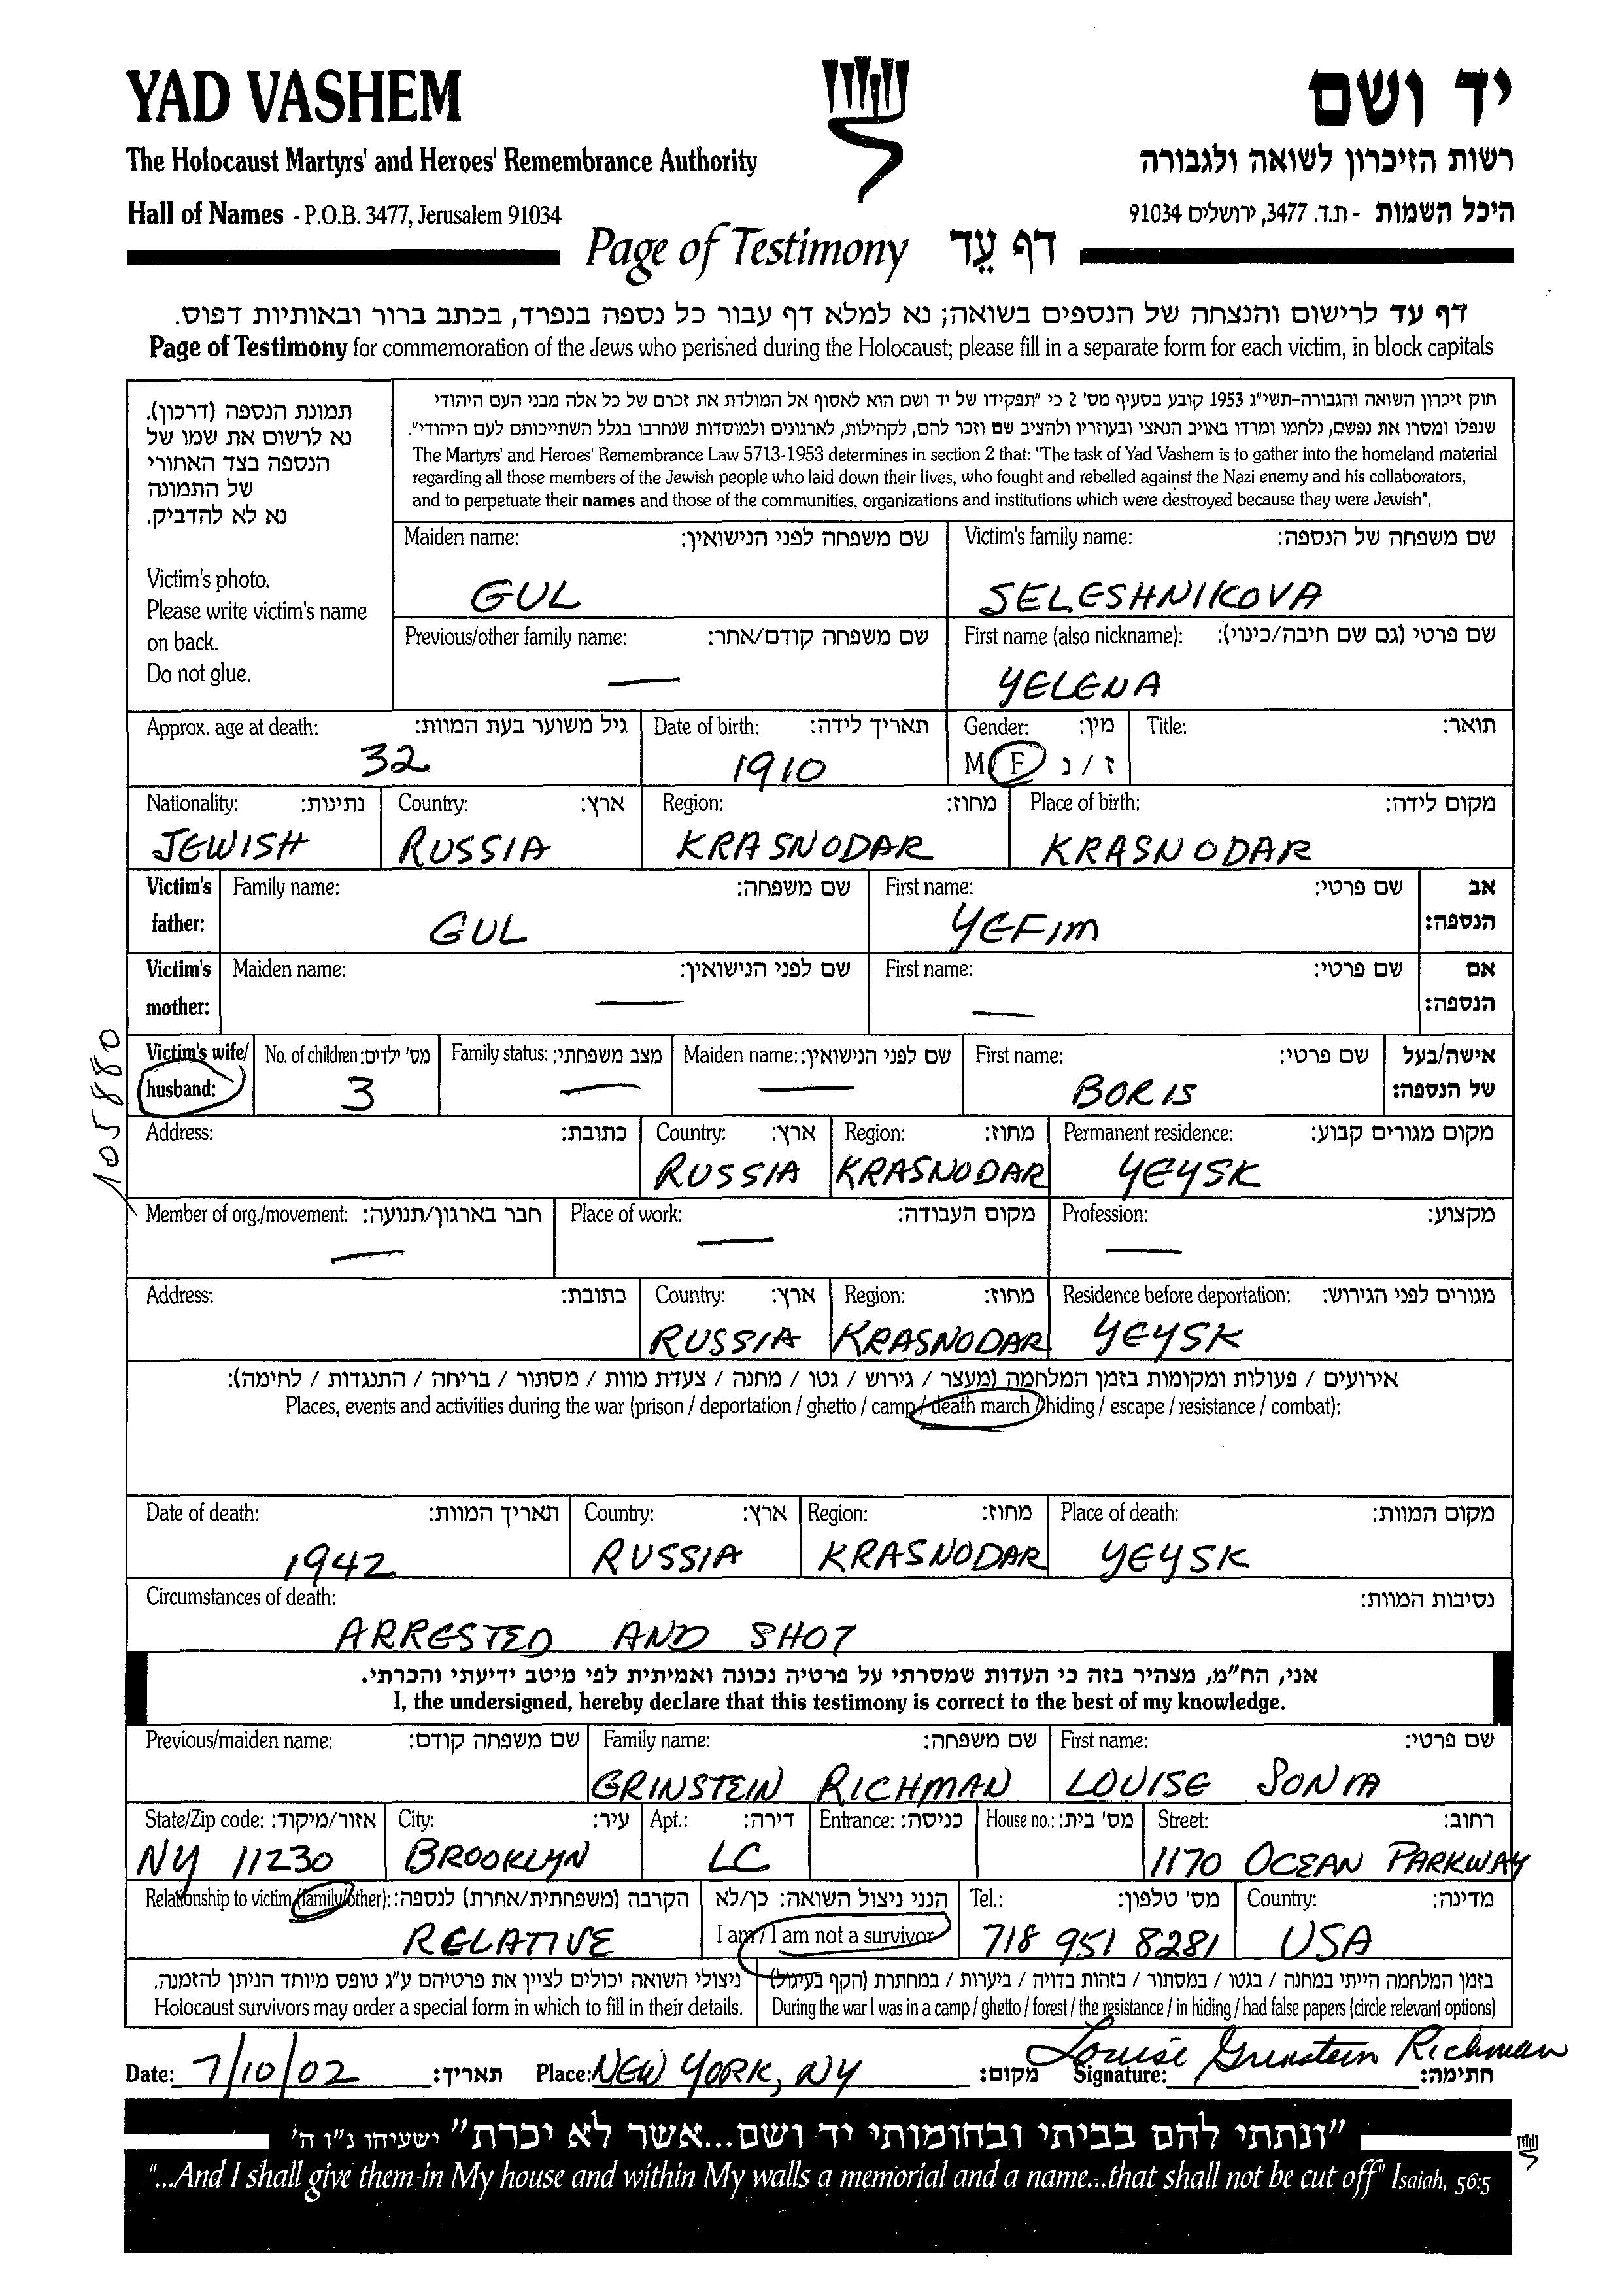 YAD VASHEM
יד ושם
The Holocaust Martyrs' and Heroes' Remembrance Authority
רשות הזיכרון לשואה ולגבורה
Hall of Names - P.O.B. 3477, Jerusalem 91034
היכל השמות - ת.ד. 3477, ירושלים 91034
Page of Testimony דף עֵד
דף עד לרישום והנצחה של הנספים בשואה; נא למלא דף עבור כל נספה בנפרד, בכתב ברור ובאותיות דפוס.
Page of Testimony for commemoration of the Jews who perished during the Holocaust; please fill in a separate form for each victim, in block capitals
תמונת הנספה (דרכון).
נא לרשום את שמו של
הנספה בצד האחורי
של התמונה
נא לא להדביק.
Victim's photo.
Please write victim's name
on back.
Do not glue.
חוק זיכרון השואה והגבורה-תשי״ג 1953 קובע בסעיף מס' 2 כי "תפקידו של יד ושם הוא לאסוף אל המולדת את זכרם של כל אלה מבני העם היהודי
שנפלו ומסרו את נפשם, נלחמו ומרדו באויב הנאצי ובעוזריו ולהציב שם וזכר להם, לקהילות, לארגונים ולמוסדות שנחרבו בגלל השתייכותם לעם היהודי".
The Martyrs' and Heroes' Remembrance Law 5713-1953 determines in section 2 that: "The task of Yad Vashem is to gather into the homeland material
regarding all those members of the Jewish people who laid down their lives, who fought and rebelled against the Nazi enemy and his collaborators,
and to perpetuate their names and those of the communities, organizations and institutions which were destroyed because they were Jewish".
Maiden name: שם משפחה לפני הנישואין: Victim's family name: שם משפחה של הנספה:
GUL SELESHNIKOVA
Previous/other family name: שם משפחה קודם/אחר: First name (also nickname): שם פרטי (גם שם חיבה/כינוי):
— YELENA
Approx. age at death: גיל משוער בעת המוות: Date of birth: תאריך לידה: Gender: מין: Title: תואר:
32 1910 M F ז / נ
Nationality: נתינות: Country: ארץ: Region: מחוז: Place of birth: מקום לידה:
JEWISH RUSSIA KRASNODAR KRASNODAR
Victim's Family name: שם משפחה: First name: שם פרטי: אב
father: GUL YEFIM הנספה:
Victim's Maiden name: שם לפני הנישואין: First name: שם פרטי: אם
mother: — — הנספה:
Victim's wife/ No. of children: מס' ילדים: Family status: מצב משפחתי: Maiden name: שם לפני הנישואין: First name: שם פרטי: אישה/בעל
husband: 3 — — BORIS של הנספה:
105880
Address: כתובת: Country: ארץ: Region: מחוז: Permanent residence: מקום מגורים קבוע:
RUSSIA KRASNODAR YEYSK
Member of org./movement: חבר בארגון/תנועה: Place of work: מקום העבודה: Profession: מקצוע:
— — —
Address: כתובת: Country: ארץ: Region: מחוז: Residence before deportation: מגורים לפני הגירוש:
RUSSIA KRASNODAR YEYSK
אירועים / פעולות ומקומות בזמן המלחמה (מעצר / גירוש / גטו / מחנה / צעדת מוות / מסתור / בריחה / התנגדות / לחימה):
Places, events and activities during the war (prison / deportation / ghetto / camp / death march / hiding / escape / resistance / combat):
Date of death: תאריך המוות: Country: ארץ: Region: מחוז: Place of death: מקום המוות:
1942 RUSSIA KRASNODAR YEYSK
Circumstances of death: נסיבות המוות:
ARRESTED AND SHOT
אני, הח״מ, מצהיר בזה כי העדות שמסרתי על פרטיה נכונה ואמיתית לפי מיטב ידיעתי והכרתי.
I, the undersigned, hereby declare that this testimony is correct to the best of my knowledge.
Previous/maiden name: שם משפחה קודם: Family name: שם משפחה: First name: שם פרטי:
GRINSTEIN RICHMAN LOUISE SONIA
State/Zip code: אזור/מיקוד: City: עיר: Apt.: דירה: Entrance: כניסה: House no.: מס' בית: Street: רחוב:
NY 11230 BROOKLYN LC 1170 OCEAN PARKWAY
Relationship to victim (family/other): הקרבה (משפחתית/אחרת) לנספה: הנני ניצול השואה: כן/לא Tel.: מס' טלפון: Country: מדינה:
RELATIVE I am / I am not a survivor 718 951 8281 USA
ניצולי השואה יכולים לציין את פרטיהם ע״ג טופס מיוחד הניתן להזמנה. בזמן המלחמה הייתי במחנה / בגטו / במסתור / בזהות בדויה / ביערות / במחתרת (הקף בעיגול)
Holocaust survivors may order a special form in which to fill in their details. During the war I was in a camp / ghetto / forest / the resistance / in hiding / had false papers (circle relevant options)
Louise Grinstein Richman
Date: 7/10/02 תאריך: Place: NEW YORK, NY מקום: Signature: חתימה:
"ונתתי להם בביתי ובחומותי יד ושם...אשר לא יכרת" ישעיהו נ״ו ה'
"...And I shall give them in My house and within My walls a memorial and a name...that shall not be cut off" Isaiah, 56:5